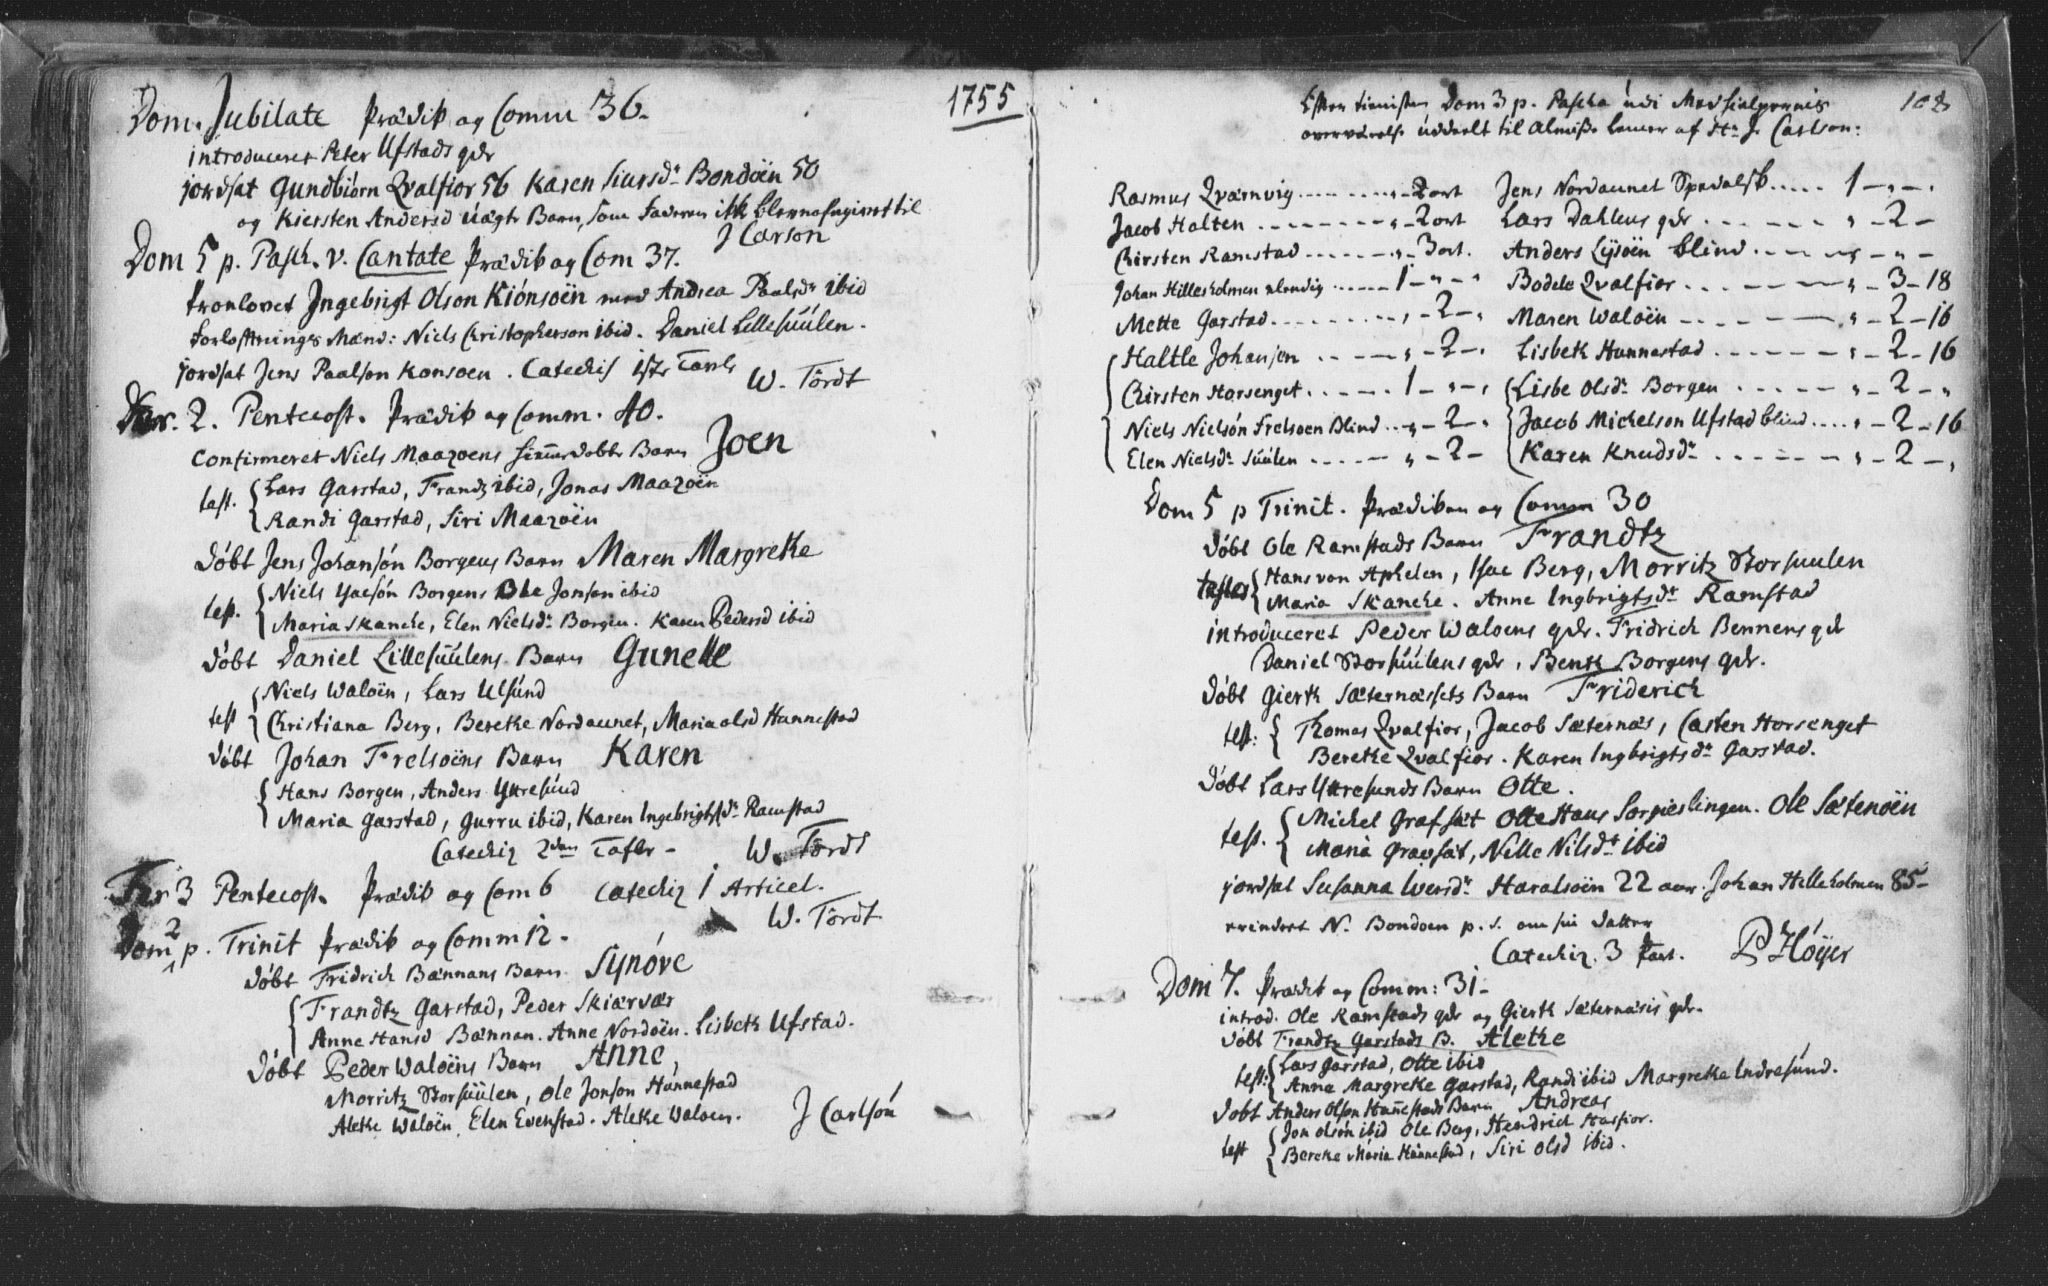 1755
Dom. Jubilate Prædik og Comm 36.
introduceret Peter Ufstads qde
jordsat Gundbiørn Qvalfior 56 Karen Siursdr Bondøen 50
og Kiersten Andersd uægte Barn, som Faderen ikk blev til
J Carson
Dom 5 p. Pasch. v. Cantate Prædik og Com 37.
tronlovet Ingebrigt Olsøn Kiønsøen med Andrea Paalsdr ibid
forlofttnings Mænd: Niels Christopherson ibid. Daniel Lillesuulen.
jordsat Jens Paalson Konsoen. Catechis 1ste Tavle
W. Tørdt
Fer. 2. Pentecost. Prædik og Comm. 40.
Confirmeret Niels Maazoens hiemmedøbte Barn Joen
test. Lars Garstad, Frandz ibid, Jonas Maazøen
Randi Garstad, Siri Maazøen
Døbt Jens Johansøn Borgens Barn Maren Margrete
test. Niels Isacsøn Borgens Ole Jonsøn ibid
Maria Skancke, Elen Nielsdr Borgen. Karen Pedersd ibid
døbt Daniel Lillesuulens Barn Gunelle
test Niels Waloen, Lars Ulsund
Christiana Berg, Berete Nordaunet, Maria olsd Hunnestad
døbt Johan Frelsøens Barn Karen
Hans Borgen, Anders Yttresund
Maria Garstad, Gurru ibid, Karen Ingebrigtsdr Ramstad
Catechiz 2den Tafle -
W. Tørdt
Fer 3 Pentecost. Prædik og Com 6 Catechiz 1 Articel.
W. Tørdt
Dom 2 p. Trinit Prædik og Comm 12.
døbt Fridrich Bænnans Barn Synøve
Frandtz Garstad, Peder Skiærvær
Anne Hansd Bænnan. Anne Nordøen. Lisbeth Ufstad.
døbt Peder Waløens Barn Anne,
Morritz Storsuulen, Ole Jonson Hunnestad
Alete Waloen, Elen Evenstad. Alete Waloen.
J Carlsøn
108
Dom 3 p. Pascha udi
overværelse uddeelt til Almisse Lemer af Hr J. Carlson:
Rasmus Qværnvig - 2 ort
Jacob Halten - 2 ort
Chirsten Ramstad - 3 ort.
Johan Hillesholmen elendig 1 - " - "
Mette Garstad - 2 -
Haltle Johansen - 2 -
Chirsten Horsenget 1 - " - "
Niels Nielsøn Frelsoen Blind - 2 -
Elen Nielsdr Suulen - 2 -
Jens Nordaunet Spedalsk 1 - " -
Lars Dahlens qde - 2 -
Anders Lysøen blind - " -
Bodele Qvalfior - 3 - 18
Maren Waløen - 2 - 16
Lisbeth Hunnestad - 2 - 16
Lisbe Olsdr Borgen - 2 - "
Jacob Michelson Ufstad blind - 2 - 16
Karen Knudsdr - 2 - "
Dom 5 p Trinit. Prædiken og Comm 30
døbt Ole Ramstads Barn Frandtz
testes Hans von Aphelen, Isac Berg, Morritz Storsuulen
Maria Skancke. Anne Ingbrigtsdr Ramstad
introduceret Peder Waloens qde. Fridrich Bennens qde
Daniel Storsuulens qde, Bentz Borgens qde.
døbt Giert Sæternæssets Barn Friderich
test: Thomas Qvalfior, Jacob Sæternæs, Casten Horsenget
Berete Qvalfior. Karen Ingbrigtsdr Garstad.
døbt Lars Yttresunds Barn Otte.
test. Michel Grafsæt Otte Hans Sørgieslingen. Ole Sætenøen
Maria Gravsæt, Nille Nilsdr ibid
jordsat Susanna Iversdr Haralsøen 22 aar. Johan Hilleholmen 85
erindret N. Bondoen p. s. om sin datter
Catechiz. 3 Part. P Høyer
Dom 7. Prædik og Comm: 31 -
introd. Ole Ramstads qde og Giert Sæternæsis qde.
døbt Frandtz Garstads B. Alette
test: Lars Garstad, Otte ibid
Anna Margrete Garstad, Randi ibid Margrete Indresund.
døbt Anders Olsøn Hunnestads Barn Andreas
test Jon olsøn ibid Ole Berg, Hendrich Hasfior.
Berete Maria Hunnestad, Siri Olsd ibid.